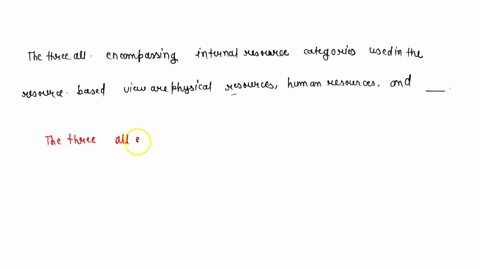 The three all. encompassing internal resource categories used in the
resource. based view are physical resources, human resources, and ___.
The three all e